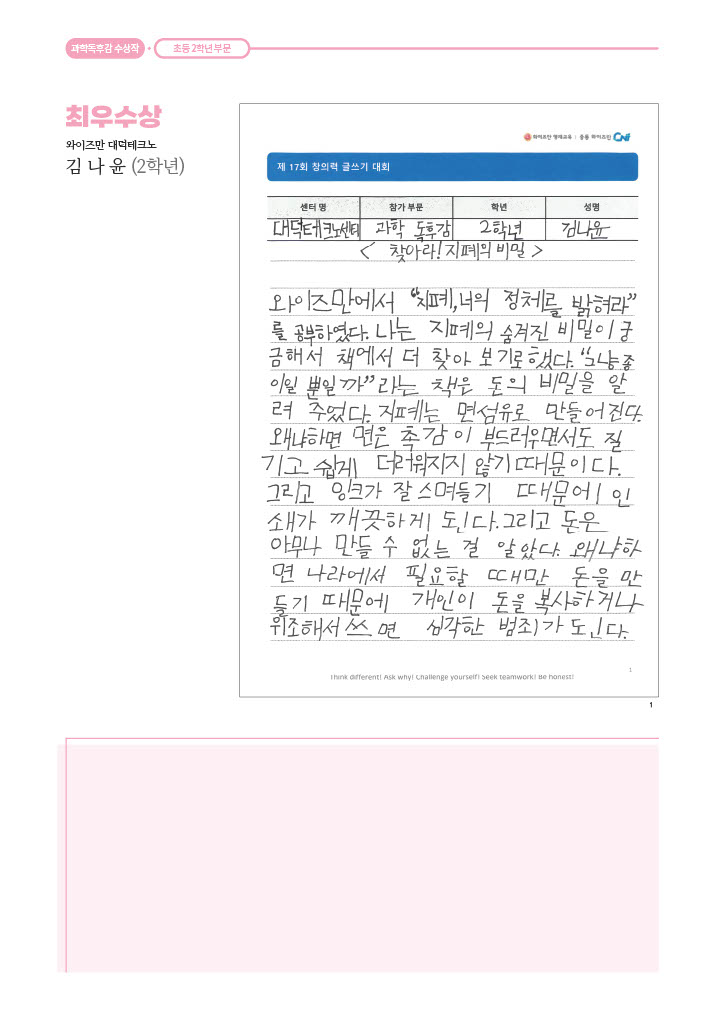 과학독후감 수상작
초등 2학년 부문
최우수상
와이즈만 대덕테크노
김 나 윤 (2학년)
와이즈만 영재교육 | 중등 와이즈만 CNI
제 17회 창의력 글쓰기 대회
센터 명 참가 부문 학년 성명
대덕테크노센터 과학 독후감 2학년 김나윤
< 찾아라! 지폐의 비밀 >
와이즈만에서 "지폐, 너의 정체를 밝혀라"
를 공부하였다. 나는 지폐의 숨겨진 비밀이 궁
금해서 책에서 더 찾아 보기로 했다. "그냥 종
이일 뿐일까" 라는 책은 돈의 비밀을 알
려 주었다. 지폐는 면섬유로 만들어진다.
왜냐하면 면은 촉감이 부드러우면서도 질
기고 쉽게 더러워지지 않기 때문이다.
그리고 잉크가 잘 스며들기 때문에 인
쇄가 깨끗하게 된다. 그리고 돈은
아무나 만들 수 없는 걸 알았다. 왜냐하
면 나라에서 필요할 때만 돈을 만
들기 때문에 개인이 돈을 복사하거나
위조해서 쓰면 심각한 범죄가 된다.
1
Think different! Ask why! Challenge yourself! Seek teamwork! Be honest!
1